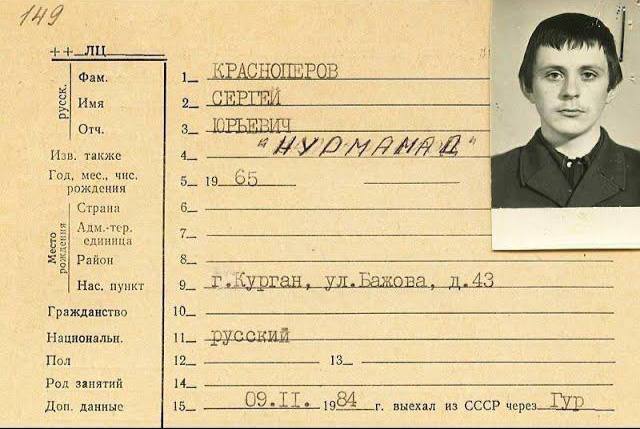 149
++ ЛЦ
русск.
Фам. 1 КРАСНОПЕРОВ
Имя 2 СЕРГЕЙ
Отч. 3 ЮРЬЕВИЧ
Изв. также 4 "НУРМАМАД"
Год, мес., чис. рождения 5 19 65
Место рождения
Страна 6
Адм.-тер. единица 7
Район 8
Нас. пункт 9 г.Курган, ул.Бажова, д.43
Гражданство 10
Национальн. 11 русский
Пол 12 13
Род занятий 14
Доп. данные 15 09.II. 1984 г. выехал из СССР через Гур